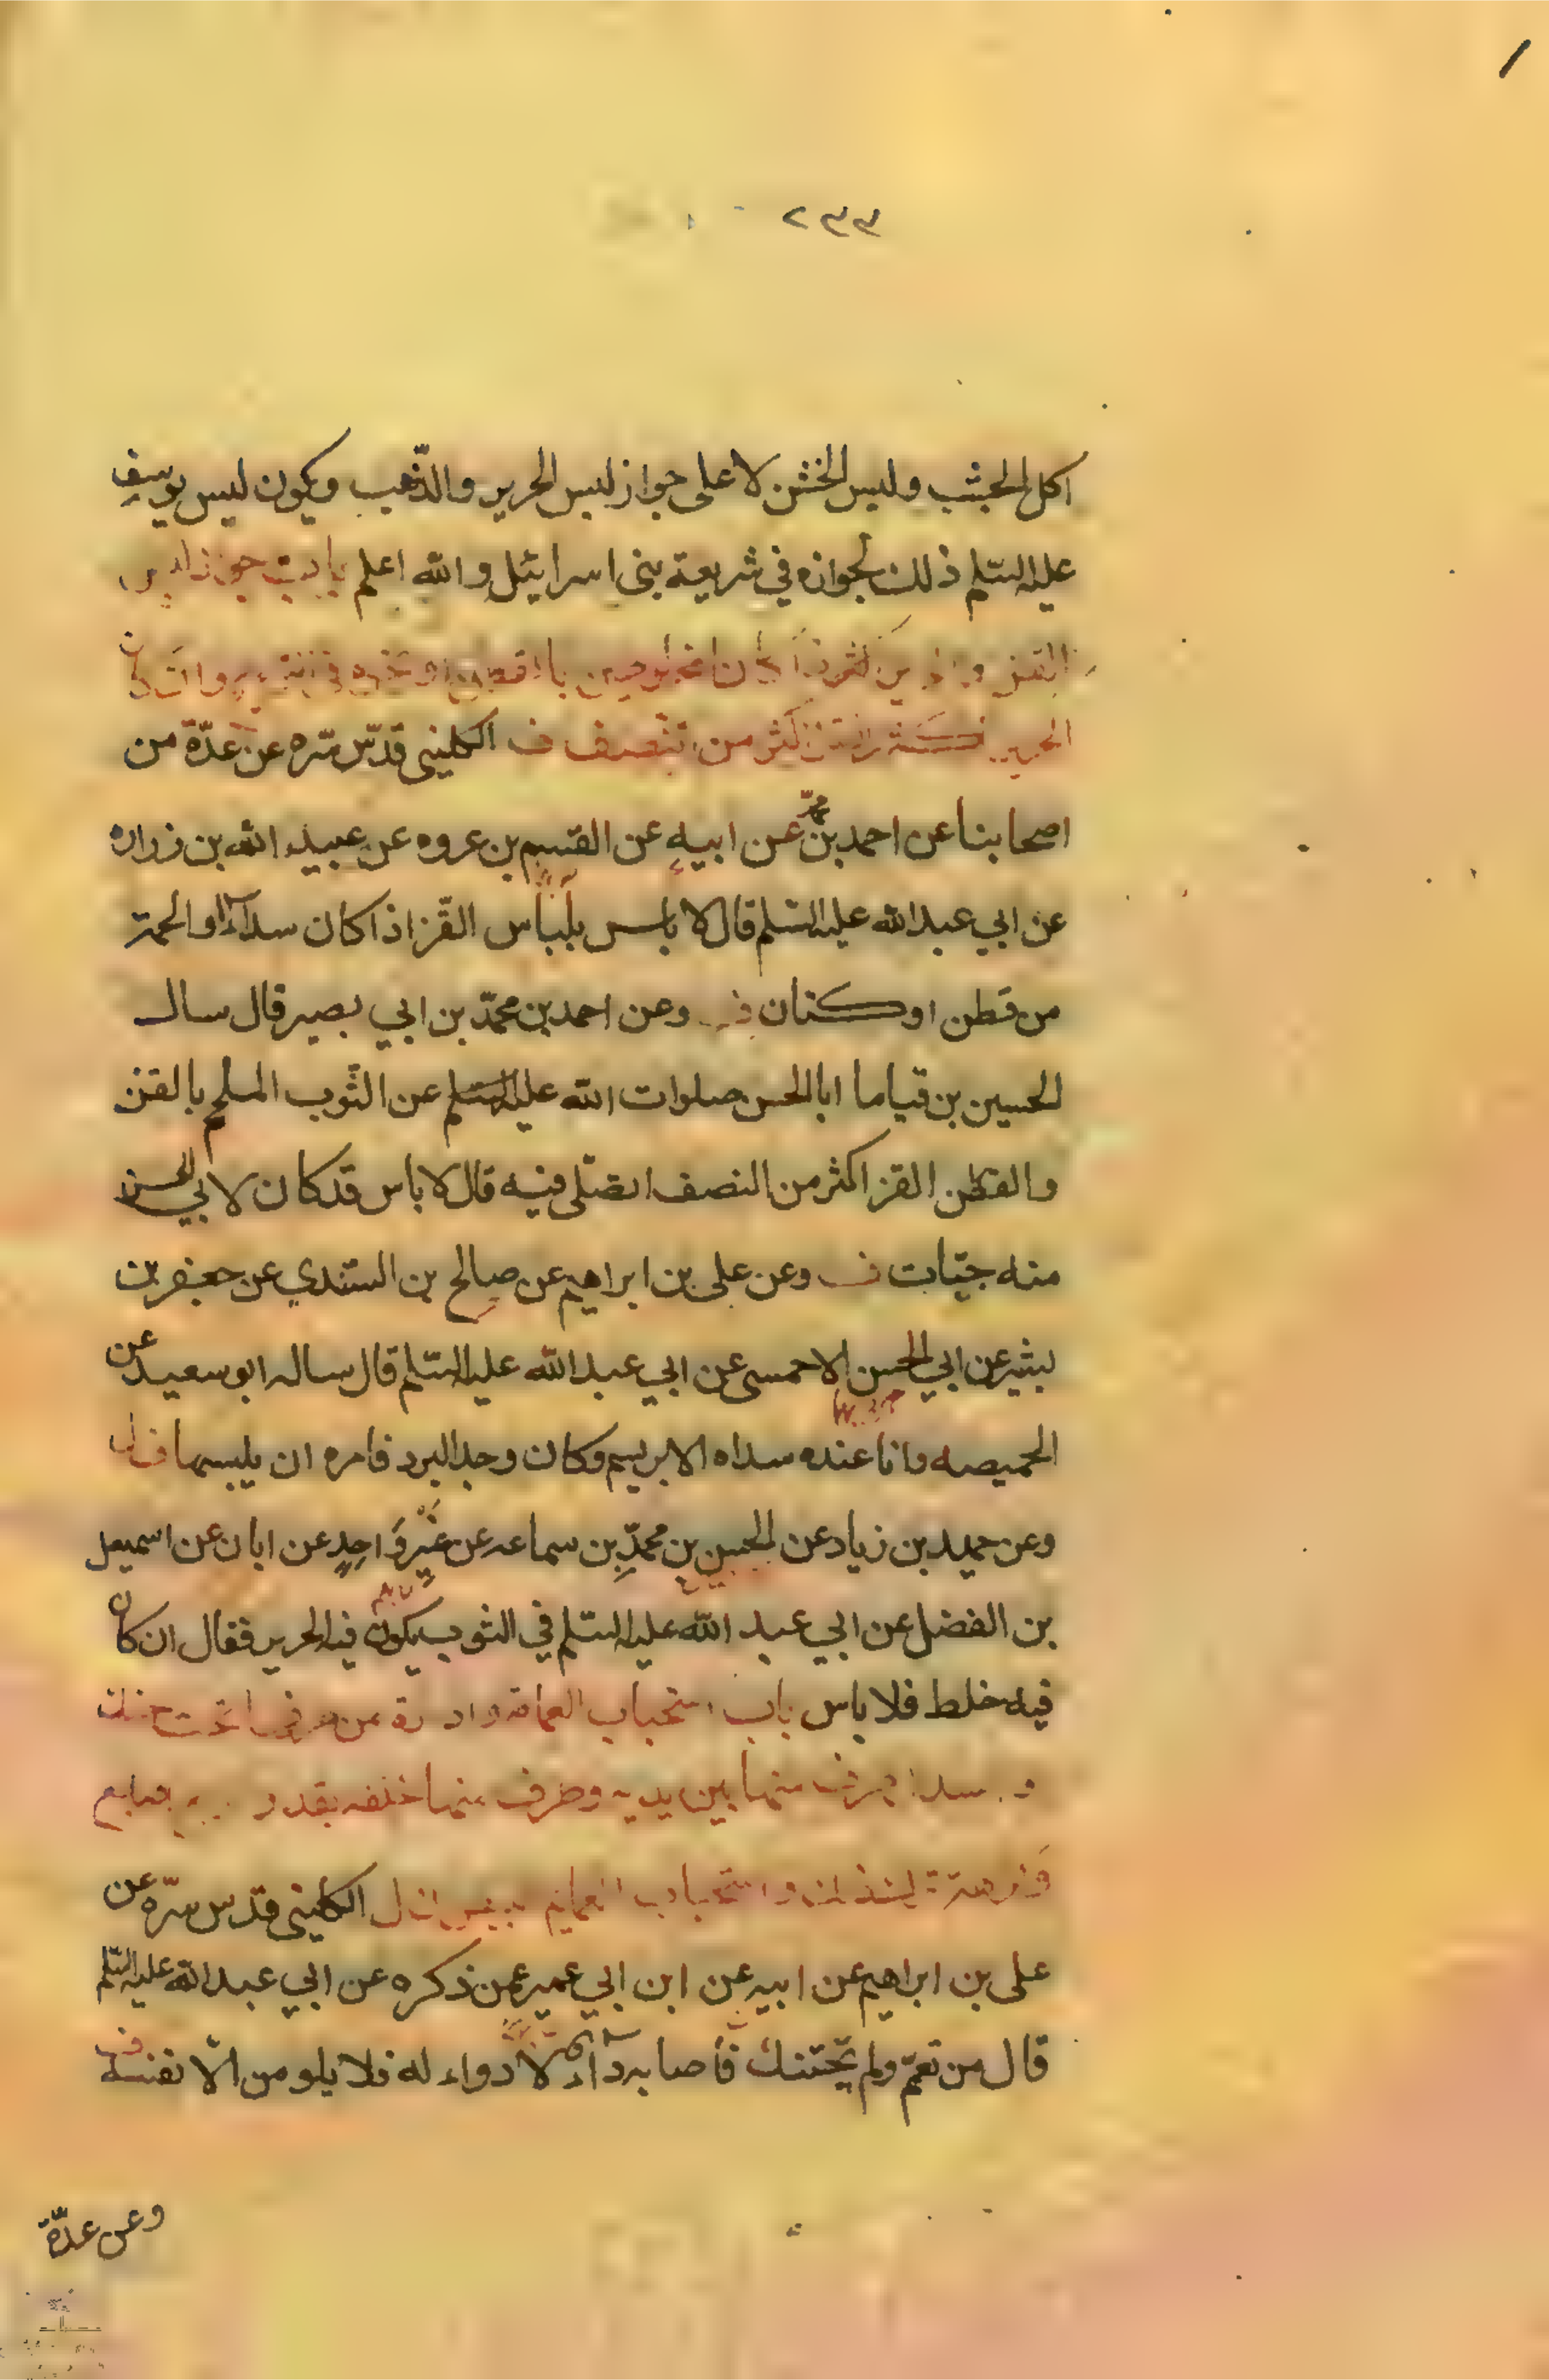 ٢٣٣
اكل الجشب ولبس الخشن لا على جواز لبس الحرير والذّهب ويكون لبس يوسف
عليه السّلم ذلك لجوازه في شريعة بنى اسرائيل والله اعلم باب جواز لبس
القز
الحرير اكثر من النصف ف الكلينى قدّس سّره عن عدّة من
اصحابنا عن احمد بن محمّد عن ابيه عن القسم بن عروه عن عبيد الله بن زراره
عن ابي عبد الله عليه السّلم قال لا باس بلباس القّز اذا كان سداه او لحمته
من قطن او كتان ف وعن احمد بن محمّد بن ابي بصير قال سال
الحسين بن قياما ابا الحسن صلوات الله عليه السّلم عن الثّوب الملحم بالقز
والقطن القز اكثر من النصف ايصّلى فيه قال لا باس قد كان لابي الحسن
منه جبّات ف وعن على بن ابراهيم عن صالح بن السّندي عن جعفر بن
بشير عن ابي الحسن الاحمسى عن ابي عبد الله عليه السّلم قال ساله ابو سعيد عن
الخميصه وانا عنده سداه الابريسم وكان وجد البرد فامره ان يلبسها ف
وعن حميد بن زياد عن الحسين بن محمّدِ بن سماعه عن غَيْرِ وَاحِدٍ عن ابان عن اسمعيل
بن الفضل عن ابي عبد الله عليه السّلم في الثوب يكون فيه الحرير فقال ان كان
فيه خلط فلا باس باب استحباب العمامة
منها بين يديه وطرف منها خلفه بقدر اصابع
الكلينى قدس سّره عن
على بن ابراهيم عن ابيه عن ابن ابي عمير عمن ذكره عن ابي عبد الله عليه السّلم
قال من تعمّم ولم يتحّنك فأصابه داء لا دواء له فلا يلومن الّا نفسه ف
وعن عدّة